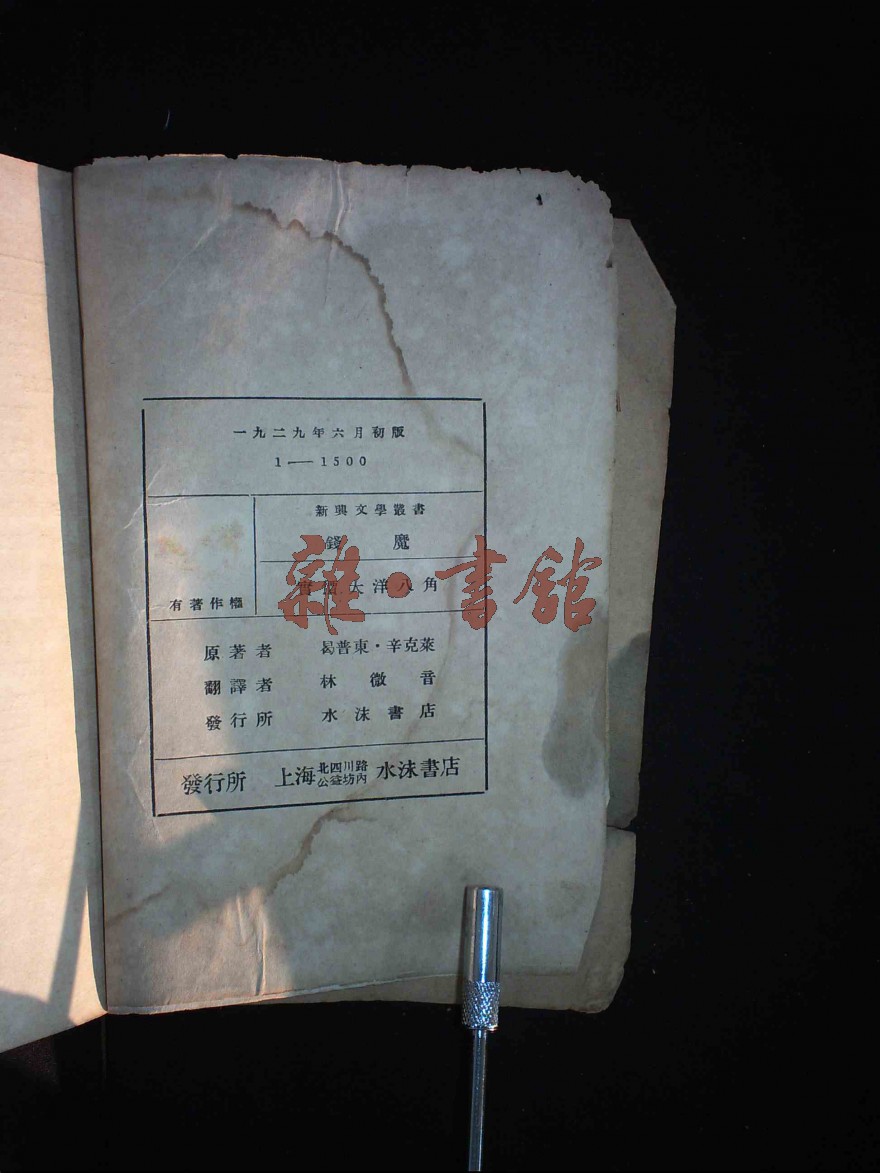 一九二九年六月初版
1——1500
新興文學叢書
錢魔
實價大洋八角
有著作權
原著者 曷普東·辛克萊
翻譯者 林微音
發行所 水沫書店
發行所 上海北四川路公益坊內 水沫書店
雜·書館